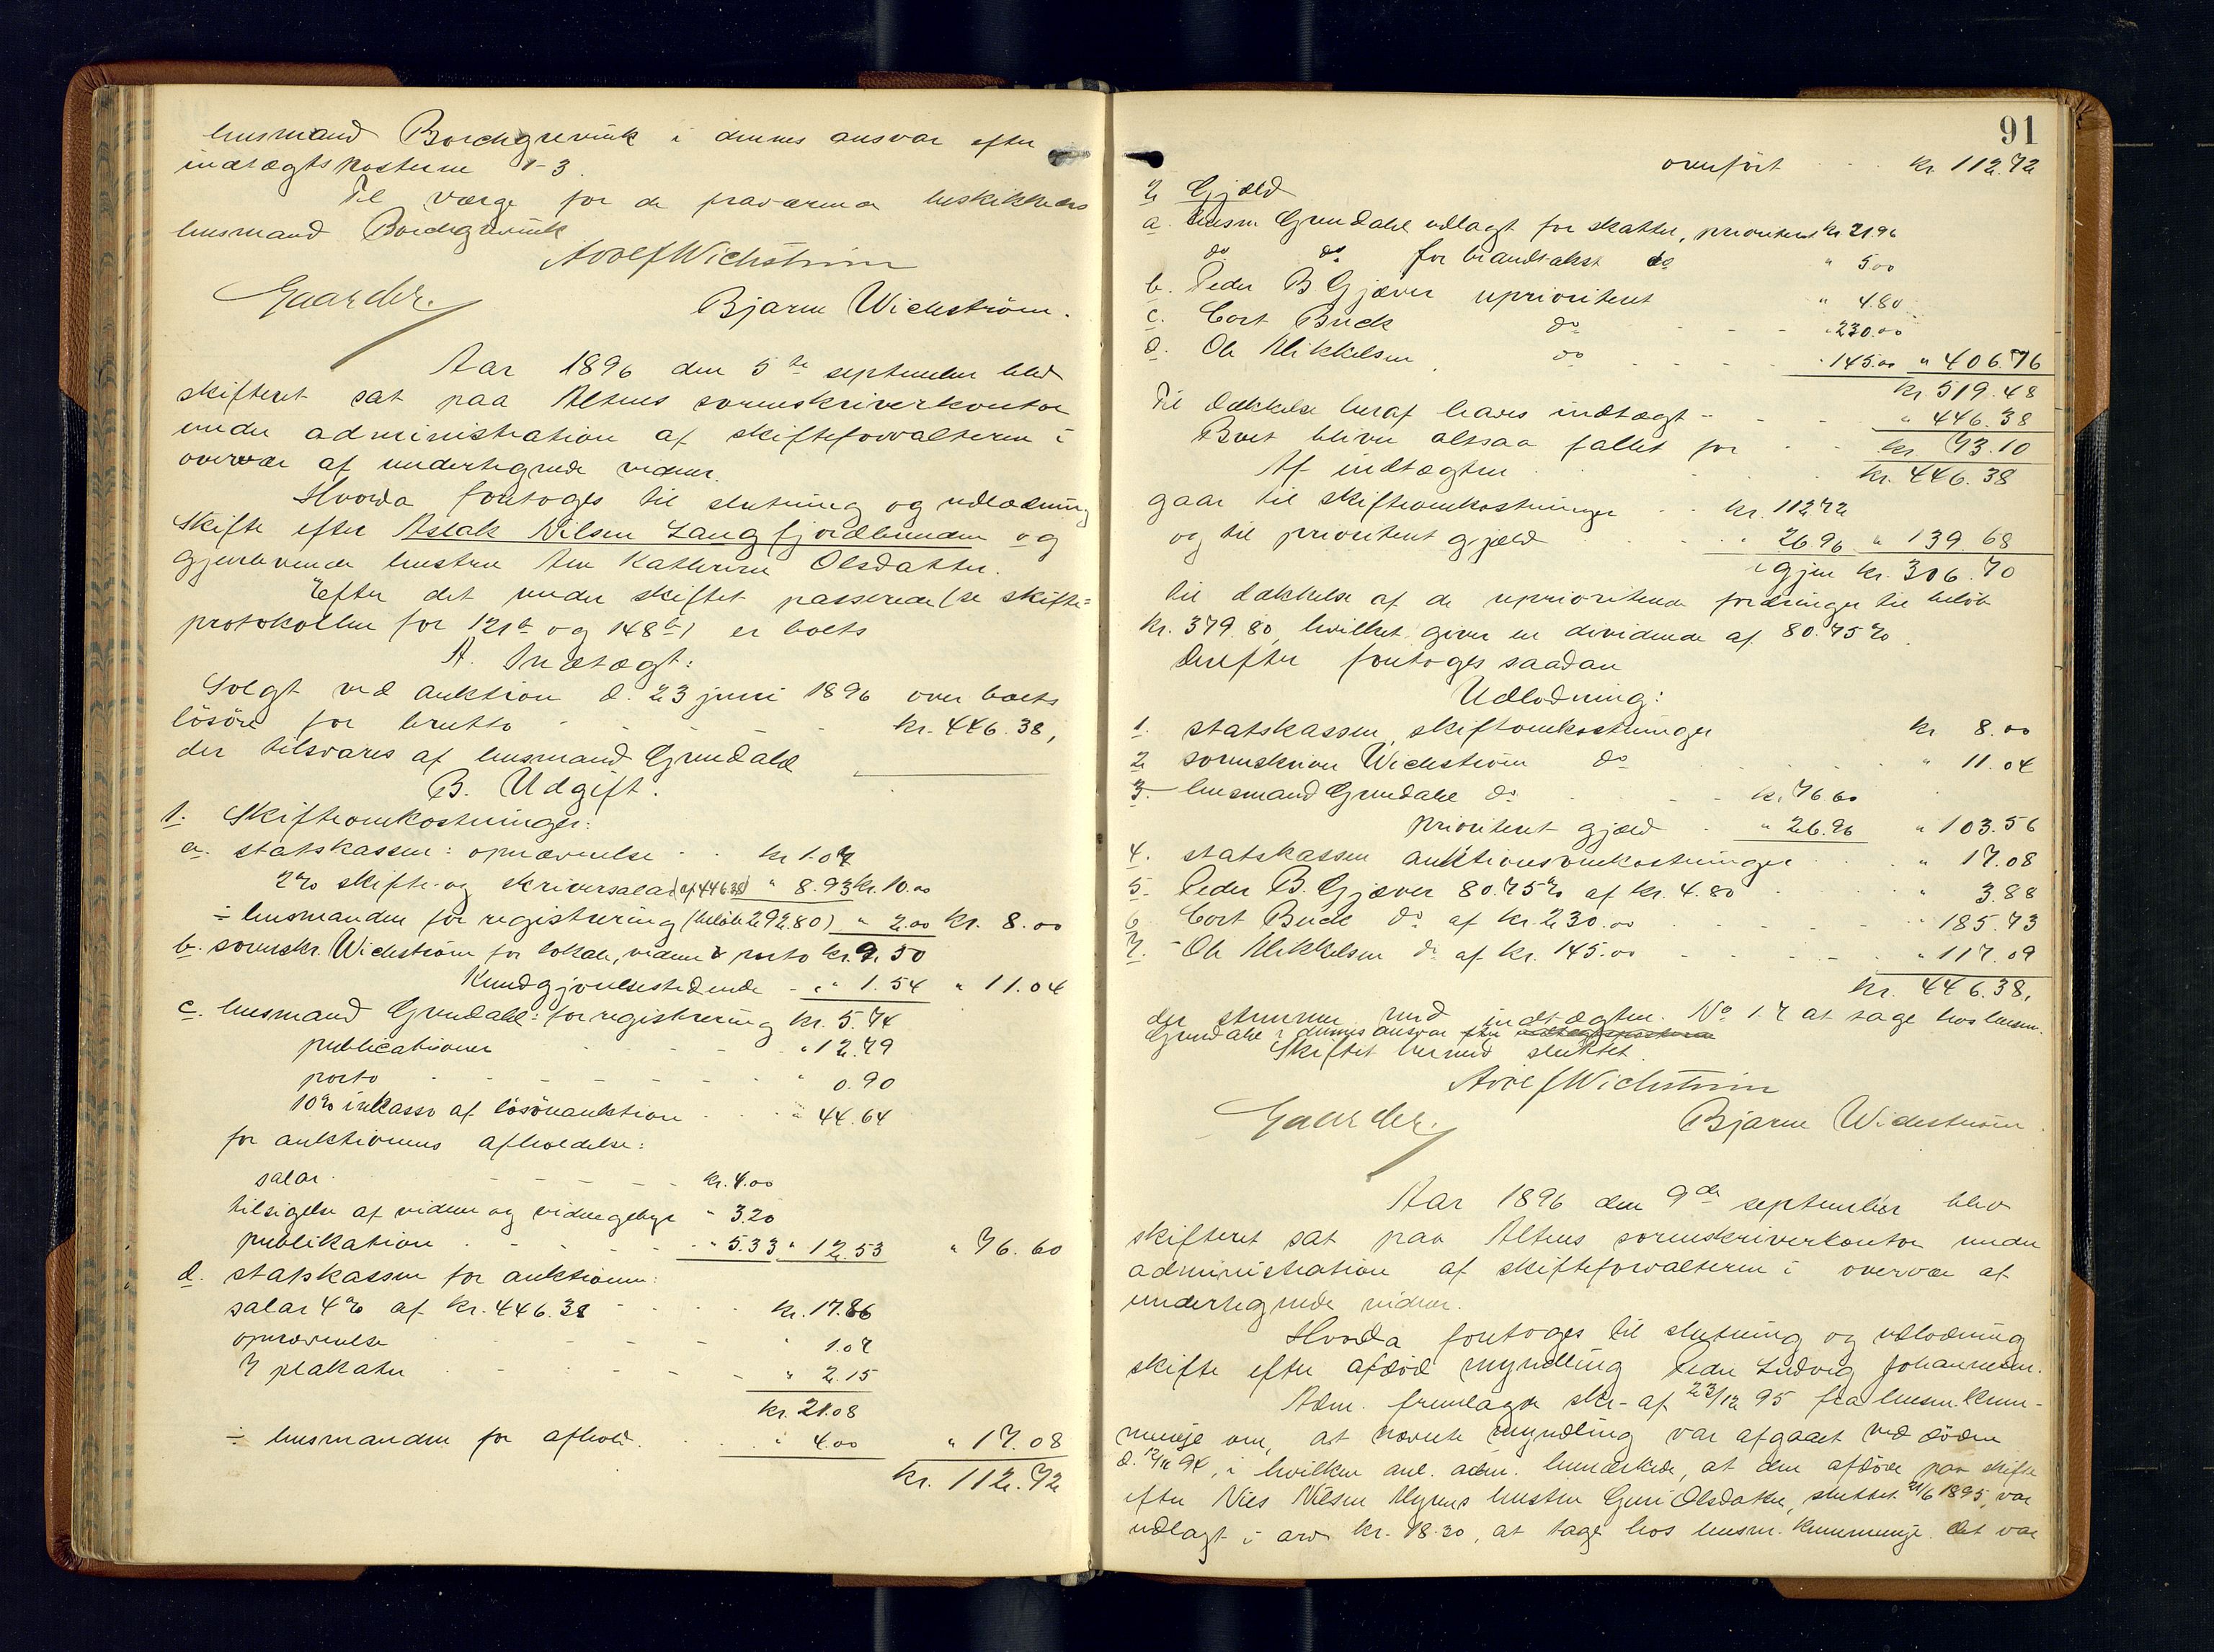 lensmand Borchgrevink i dennes ansvar efter
indtægtsposterne 1-3.
Til værge for de fraværende beskikkedes
lensmand Borchgrevink
Adolf Wichstrøm
Gaarder.
Bjarne Wichström.
Aar 1896 den 5te september blev
skifteret sat paa Altens sorenskriverkontor
under administration af skifteforvalteren i
overvær af undertegnede vidner.
Hvorda foretoges til slutning og udlodning
Skifte efter Aslak Nilsen Langfjordbunden og
gjenlevende hustru Ane Kathrine Olsdatter.
Efter det under skiftet passerede (se skifte=
protokollen for 121b og 148b) er boets
A. Indtægt:
Solgt ved auktion d. 23 juni 1896 over boets
lösöre for brutto - - - kr. 446.38,
der tilsvares af lensmand Grundahl
B. Udgift.
1. Skifteomkostninger:
a. statskassen: opnævnelse - - kr 1.07
2% skifte- og skriversalar (af 446.38) " 8.93 kr. 10.00
÷ lensmanden for registrering (beløb 292.80) " 2.00 kr. 8.00
b. sorenskr. Wichström for lokale, vidner & porto kr. 9.50
Kundgjörelsestidende - " 1.54 " 11.04
c. lensmand Grundahl: for registrering kr. 5.74
publicationer - - - " 12.79
porto - - - - " 0.90
10% inkasso af lösöreauktion - - " 44.64
for auktionens afholdelse:
salar - - - - kr. 4.00
tilsigelse af vidner og vidnegebyr " 3.20
publikation - - - - " 5.33 " 12.53 " 76.60
d. statskassen for auktionen:
salar 4% af kr. 446.38 - - - kr. 17.86
opnævnelse - - - " 1.07
7 plakater - - - " 2.15
kr. 21.08
÷ lensmanden for afhold. - - " 4.00 " 17.08
kr. 112.72
91
overført - - kr. 112.72
2. Gjæld
a. lensm Grundahl udlagt for skatter, prioriteret kr 21.96
do do for brandtakst do " 5.00
b. Peder B Gjæver uprioriteret " 4.80
c. Cort Buck do - - - " 230.00
d. Ole Mikkelsen do - - - " 145.00 " 406.76
kr 519.48
Til dækkelse heraf haves indtægt - - - " 446.38
Boet bliver altsaa fallit for - - kr. 73.10
Af indtægten - - kr. 446.38
gaar til skifteomkostninger - - kr. 112.72
og til prioriteret gjæld - - " 26.96 " 139.68
igjen kr. 306.70
til dækkelse af de uprioriterede fordringer til beløb
kr. 379.80, hvilket giver en dividende af 80.75%.
Derefter foretoges saadan
Udlodning:
1. statskassen, skifteomkostninger kr 8.00
2. sorenskriver Wichström do - - - " 11.04
3. lensmand Grundahl do - - - kr. 76.60
prioriteret gjæld - " 26.96 " 103.56
4. statskassen auktionsomkostninger - - " 17.08
5. Peder B. Gjæver 80.75% af kr. 4.80 - - " 3.88
6. Cort Buck do af kr. 230.00 - - - " 185.73
7. Ole Mikkelsen do af kr. 145.00 - - - " 117.09
kr. 446.38,
der stemmer med indtægten. No 1-7 at tage hos lensm.
Grundahl i dennes ansvar
Skiftet hermed sluttet.
Adolf Wichstrøm
Gaarder.
Bjarne Wichström.
Aar 1896 den 9de september blev
skifteret sat paa Altens sorenskriverkontor under
administration af skifteforvalteren i overvær af
undertegnede vidner.
Hvorda foretoges til slutning og udlodning
skifte efter afdöd myndling Peder Ludvig Johannesen.
Adm. fremlagde skr. af 23/12 95 fra lensm. Kum-
munje om, at nævnte myndling var afgaaet ved döden
d. 12/11 94, i hvilken anl. adm. bemærkede, at den afdöde paa skifte
efter Nils Nilsen Myrens hustru Guri Olsdatter, sluttet 21/6 1895, var
udlagt i arv kr. 18.20, at tage hos lensm. Kummunje. det var